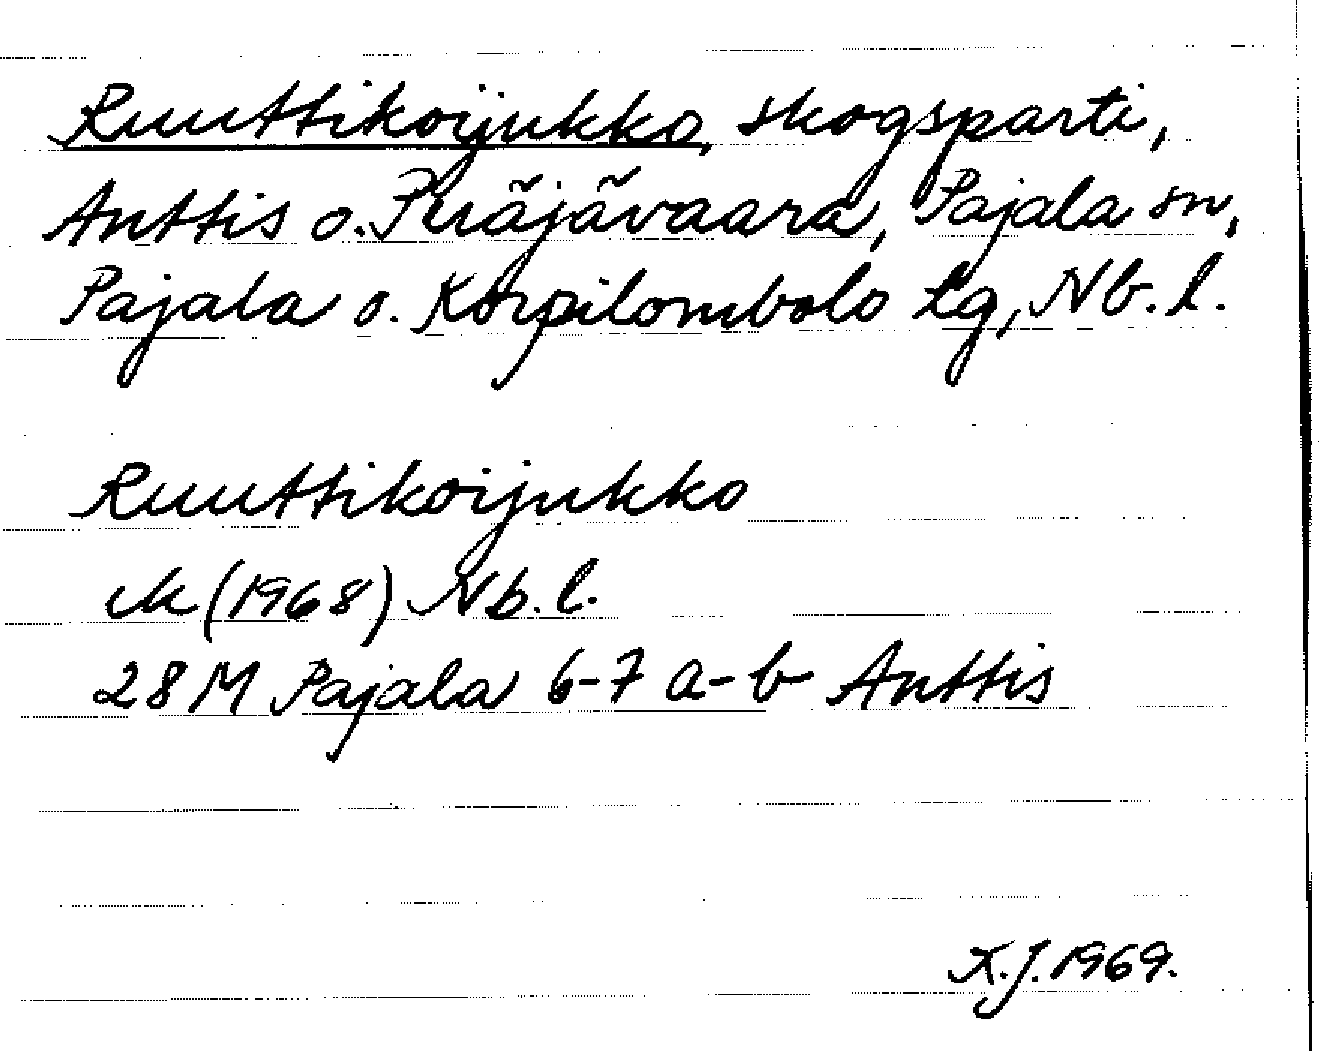 Ruuttikoijukko, skogsparti,
Anttis o. Peräjävaara, Pajala sn,
Pajala o. Korpilombolo tg, Nb. l.
Ruuttikoijukko
ek (1968) Nb. l.
28 M Pajala 6-7 a-b Anttis
K.J. 1969.